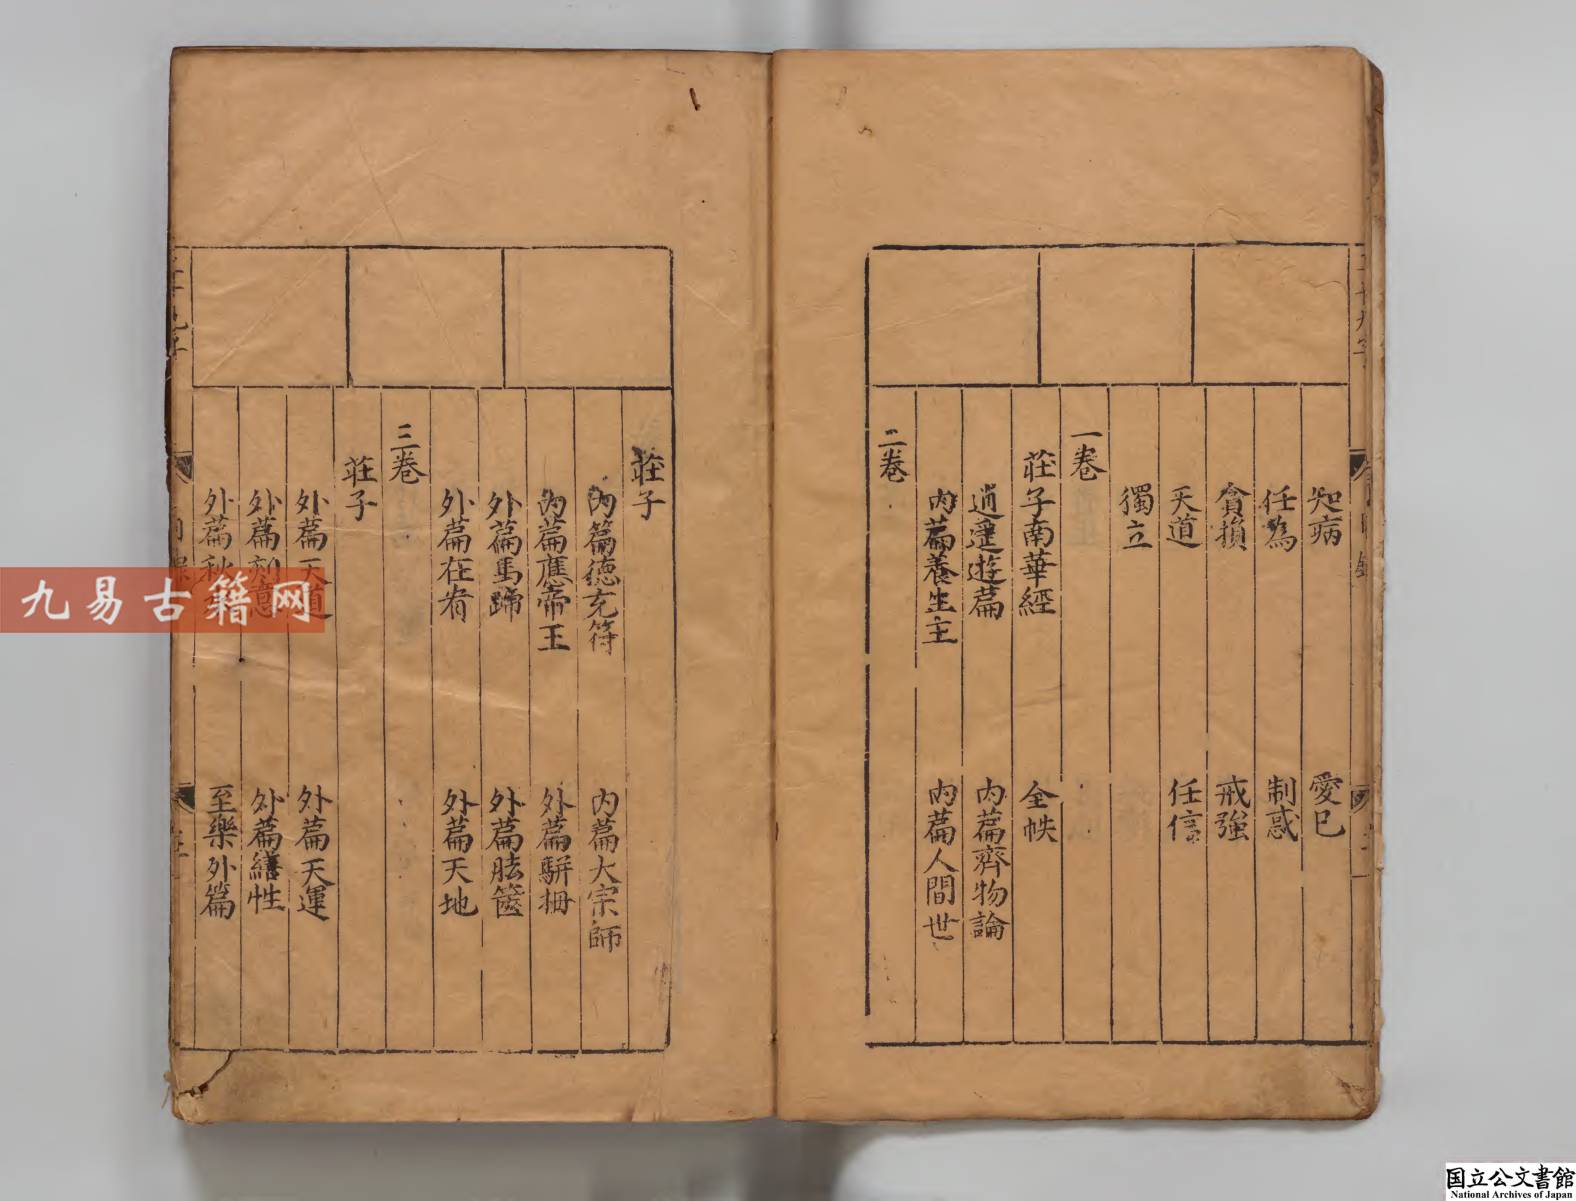 知病 愛已
任為 制惑
貪損 戒強
天道 任信
獨立
一卷
莊子南華經 全帙
逍遥遊篇 內篇齊物論
內篇養生主 內篇人間世
二卷
莊子
內篇德充符 內篇大宗師
內篇應帝王 外篇駢拇
外篇馬蹄 外篇胠篋
外篇在宥 外篇天地
三卷
莊子
外篇天道 外篇天運
外篇刻意 外篇繕性
外篇秋 至樂外篇
九易古籍网
国立公文書館
National Archives of Japan